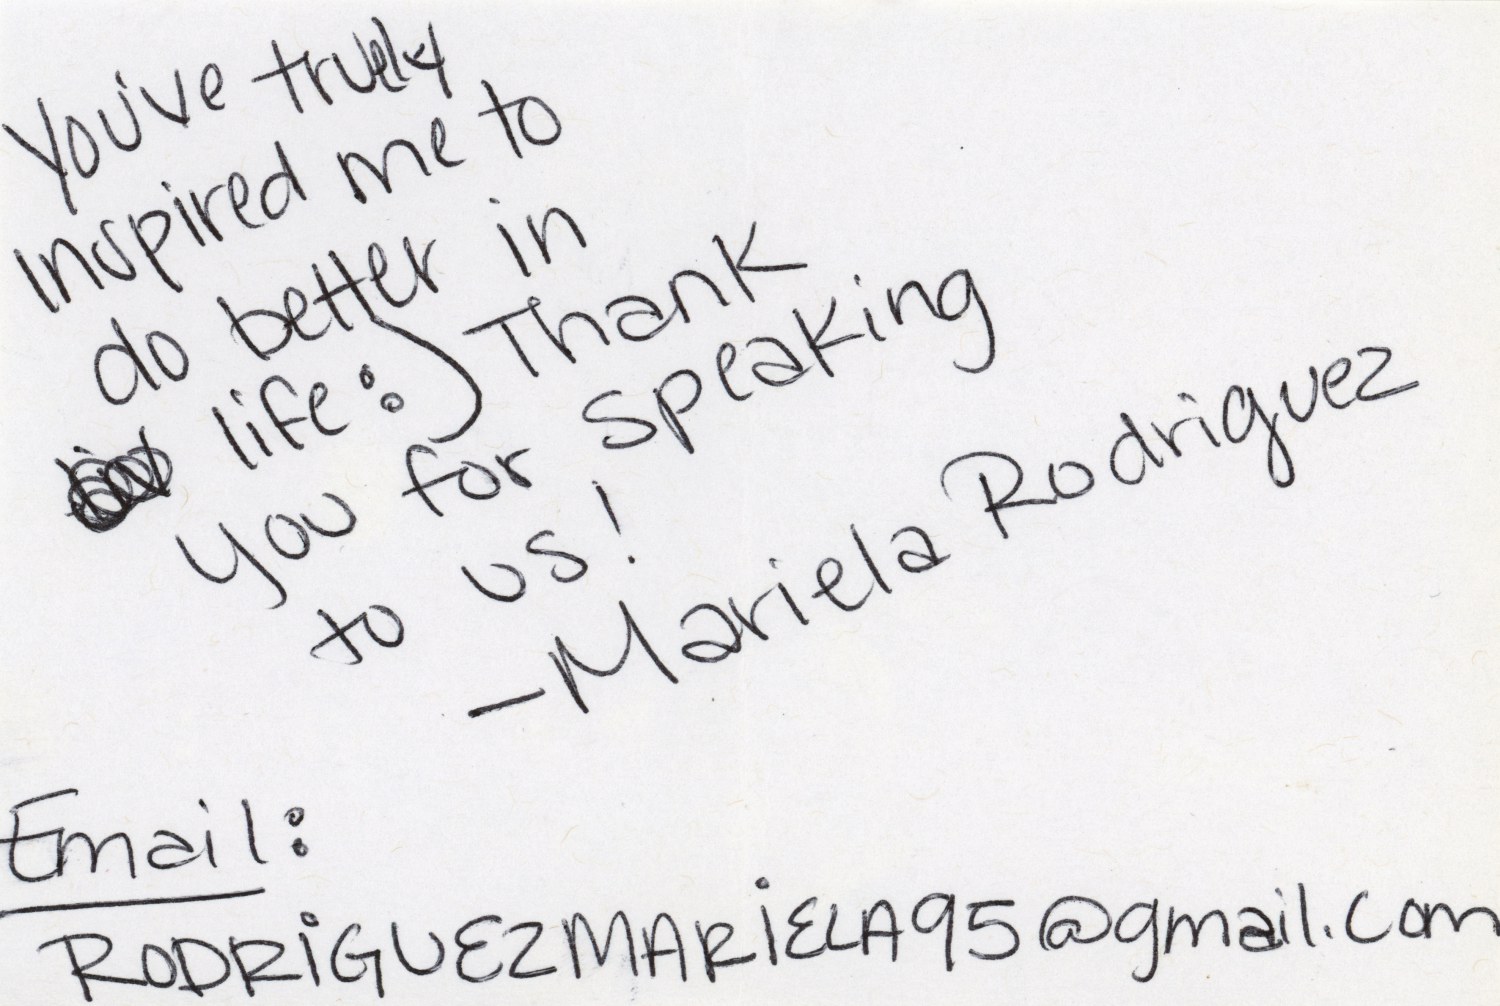 You've truely
inspired me to
do better in
life:) Thank
you for speaking
to us!
—Mariela Rodriguez
Email:
RODRiGUEZMARiELA95@gmail.com